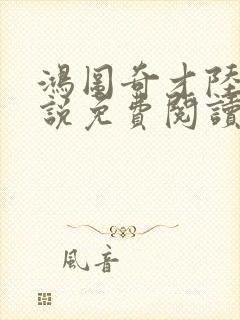 鴻圖奇才陸
說免費閱讀
風音